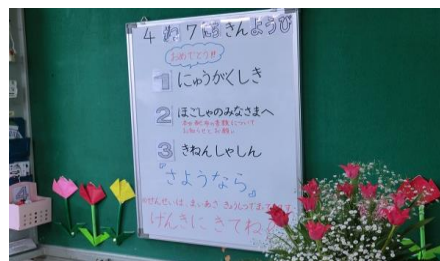 4 がつ 7 にち きんようび
おめでとう!!
1 にゅうがくしき
2 ほごしゃのみなさまへ
3 きねんしゃしん
『さようなら』
げんきに きてね